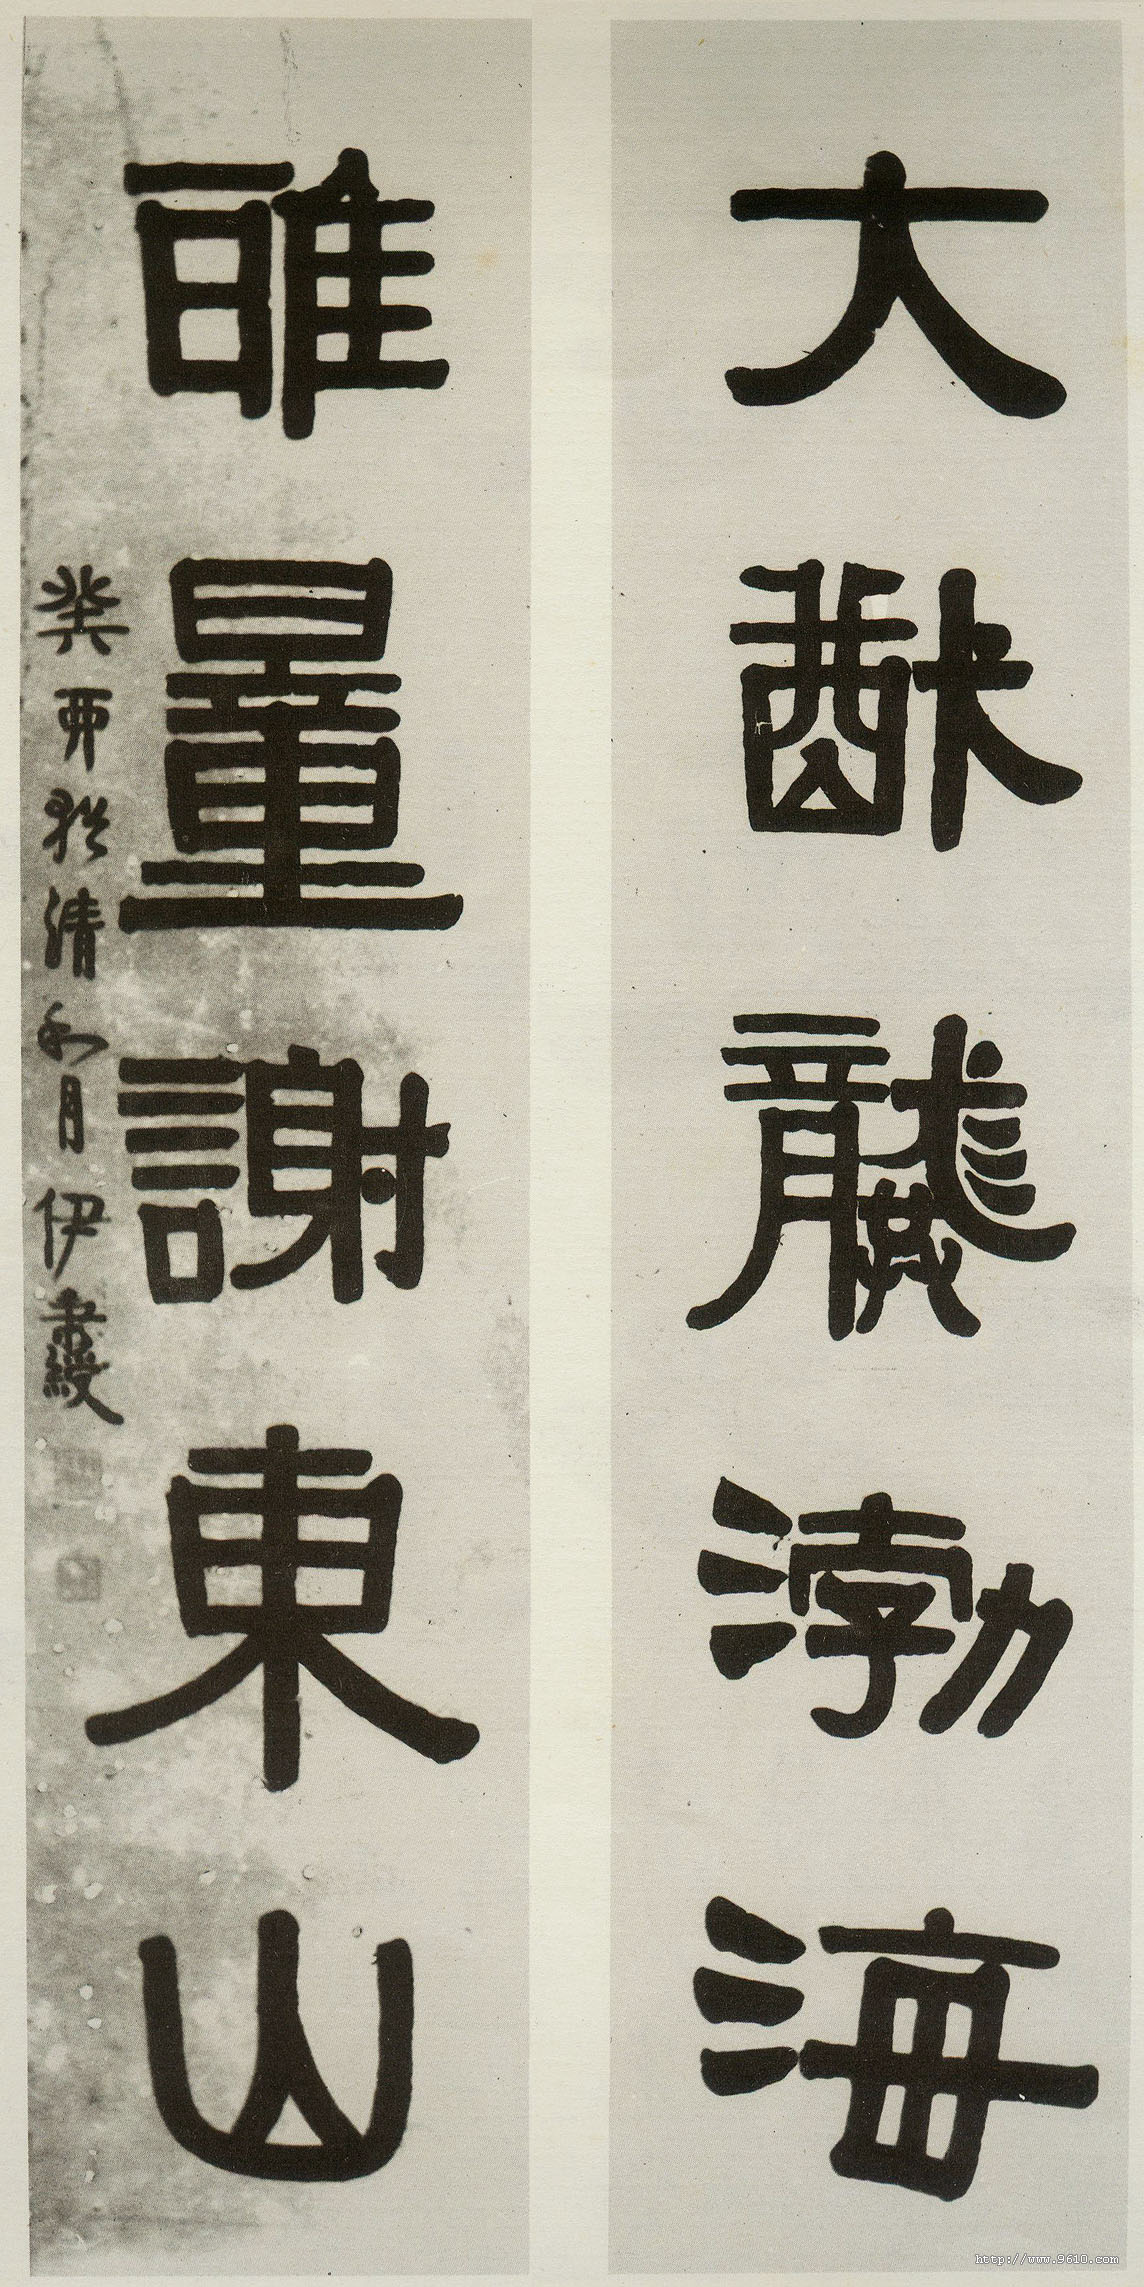 大猷龔渤海
雅量謝東山
癸酉於清和月伊秉綬
http://www.9610.com